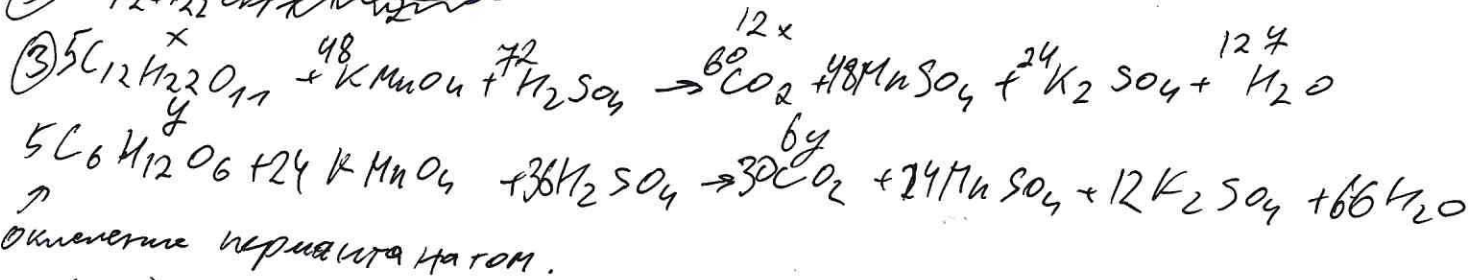 12x
③ 5C12H22O11 + 48KMnO4 + 72H2SO4 → 60CO2 + 48MnSO4 + 24K2SO4 + 127H2O
x
y 6y
5C6H12O6 + 24KMnO4 + 36H2SO4 → 30CO2 + 24MnSO4 + 12K2SO4 + 66H2O
↑
окисление перманганатом.